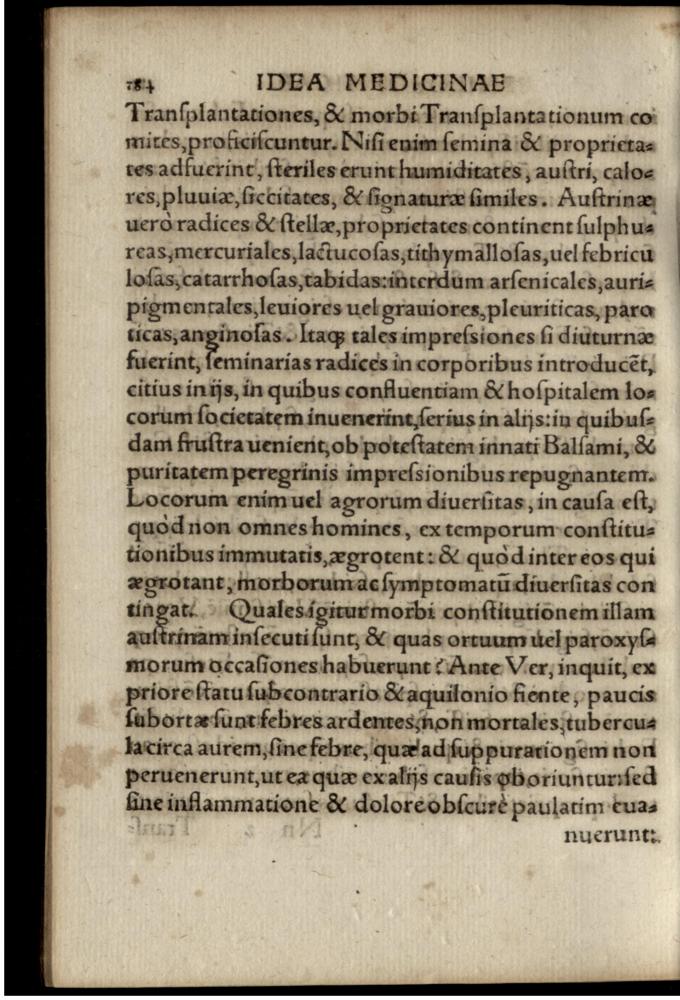 284 IDEA MEDICINAE
Tranſplantationes, & morbi Tranſplantationum co
mites, proficiſcuntur. Niſi enim ſemina & proprieta⸗
tes adfuerint, ſteriles erunt humiditates, auſtri, calo⸗
res, pluuiæ, ſiccitates, & ſignaturæ ſimiles. Auſtrinæ
uerò radices & ſtellæ, proprietates continent ſulphu⸗
reas, mercuriales, lactucoſas, tithymalloſas, uel febricu
loſas, catarrhoſas, tabidas: interdum arſenicales, auri⸗
pigmentales, leuiores uel grauiores, pleuriticas, paro
ticas, anginoſas. Itaq; tales impreſsiones ſi diuturnæ
fuerint, ſeminarias radices in corporibus introducẽt,
citius in ijs, in quibus confluentiam & hoſpitalem lo⸗
corum ſocietatem inuenerint, ſerius in alijs: in quibuſ⸗
dam fruſtra uenient, ob poteſtatem innati Balſami, &
puritatem peregrinis impreſsionibus repugnantem.
Locorum enim uel agrorum diuerſitas, in cauſa eſt,
quòd non omnes homines, ex temporum conſtitu⸗
tionibus immutatis, ægrotent: & quòd inter eos qui
ægrotant, morborum ac ſymptomatũ diuerſitas con
tingat. Quales igitur morbi conſtitutionem illam
auſtrinam inſecuti ſunt, & quas ortuum uel paroxyſ⸗
morum occaſiones habuerunt? Ante Ver, inquit, ex
priore ſtatu ſubcontrario & aquilonio fiente, paucis
ſubortæ ſunt febres ardentes, non mortales, tubercu⸗
la circa aurem, ſine febre, quæ ad ſuppurationem non
peruenerunt, ut ea quæ ex alijs cauſis oboriuntur: ſed
ſine inflammatione & dolore obſcurè paulatim eua⸗
nuerunt: